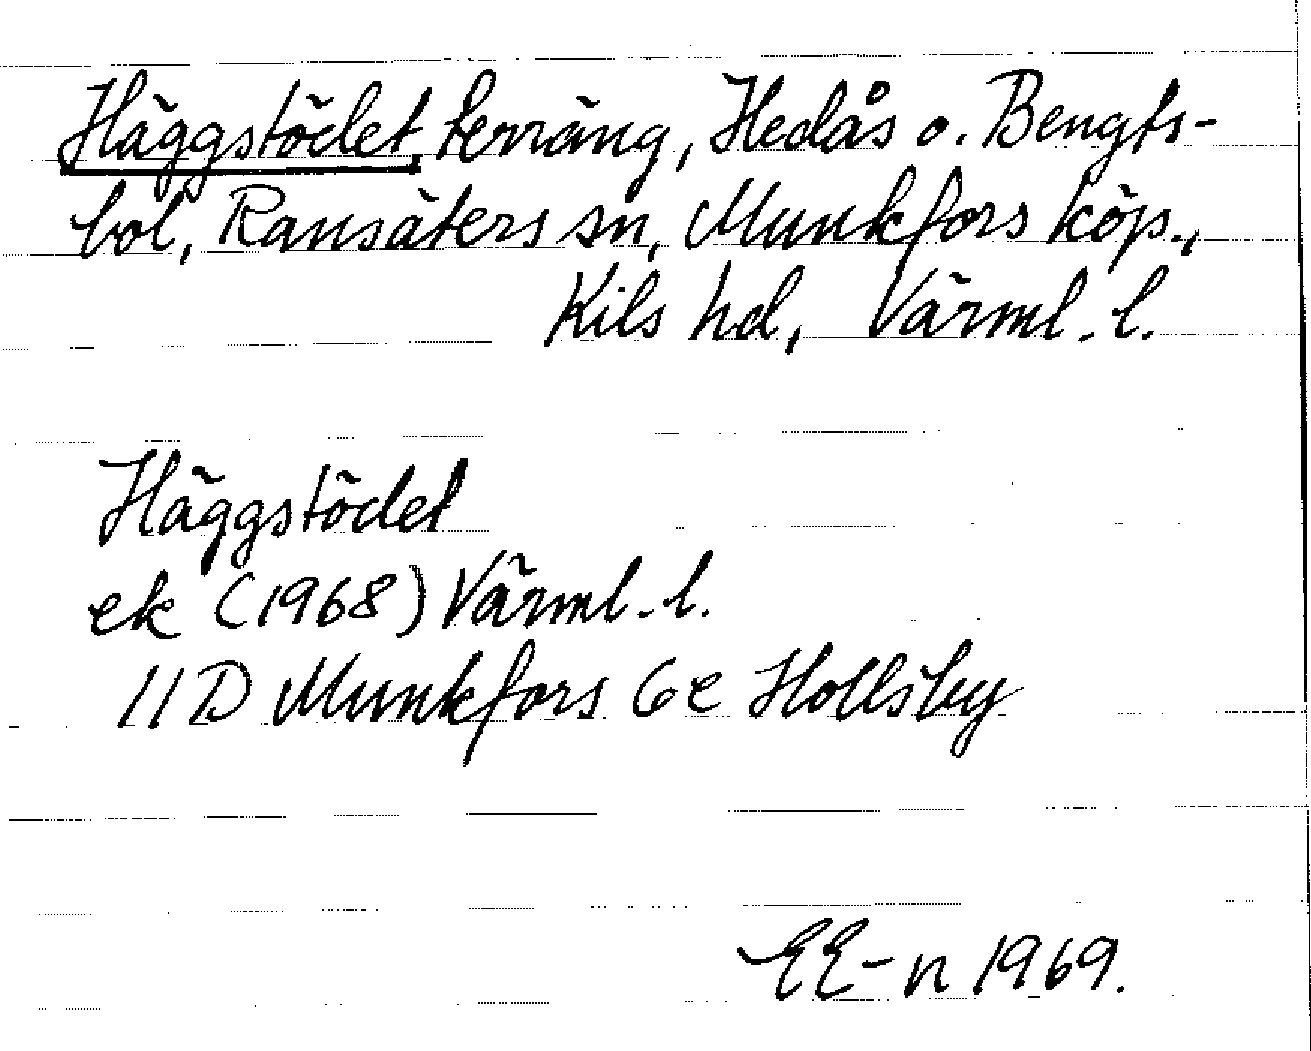 Häggstödet, terräng, Hedås o. Bengts-
bol, Ransäters sn, Munkfors köp.,
Kils hd, Värml. l.
Häggstödet
ek (1968) Värml. l.
11D Munkfors 6e Hollsby
EE-n 1969.